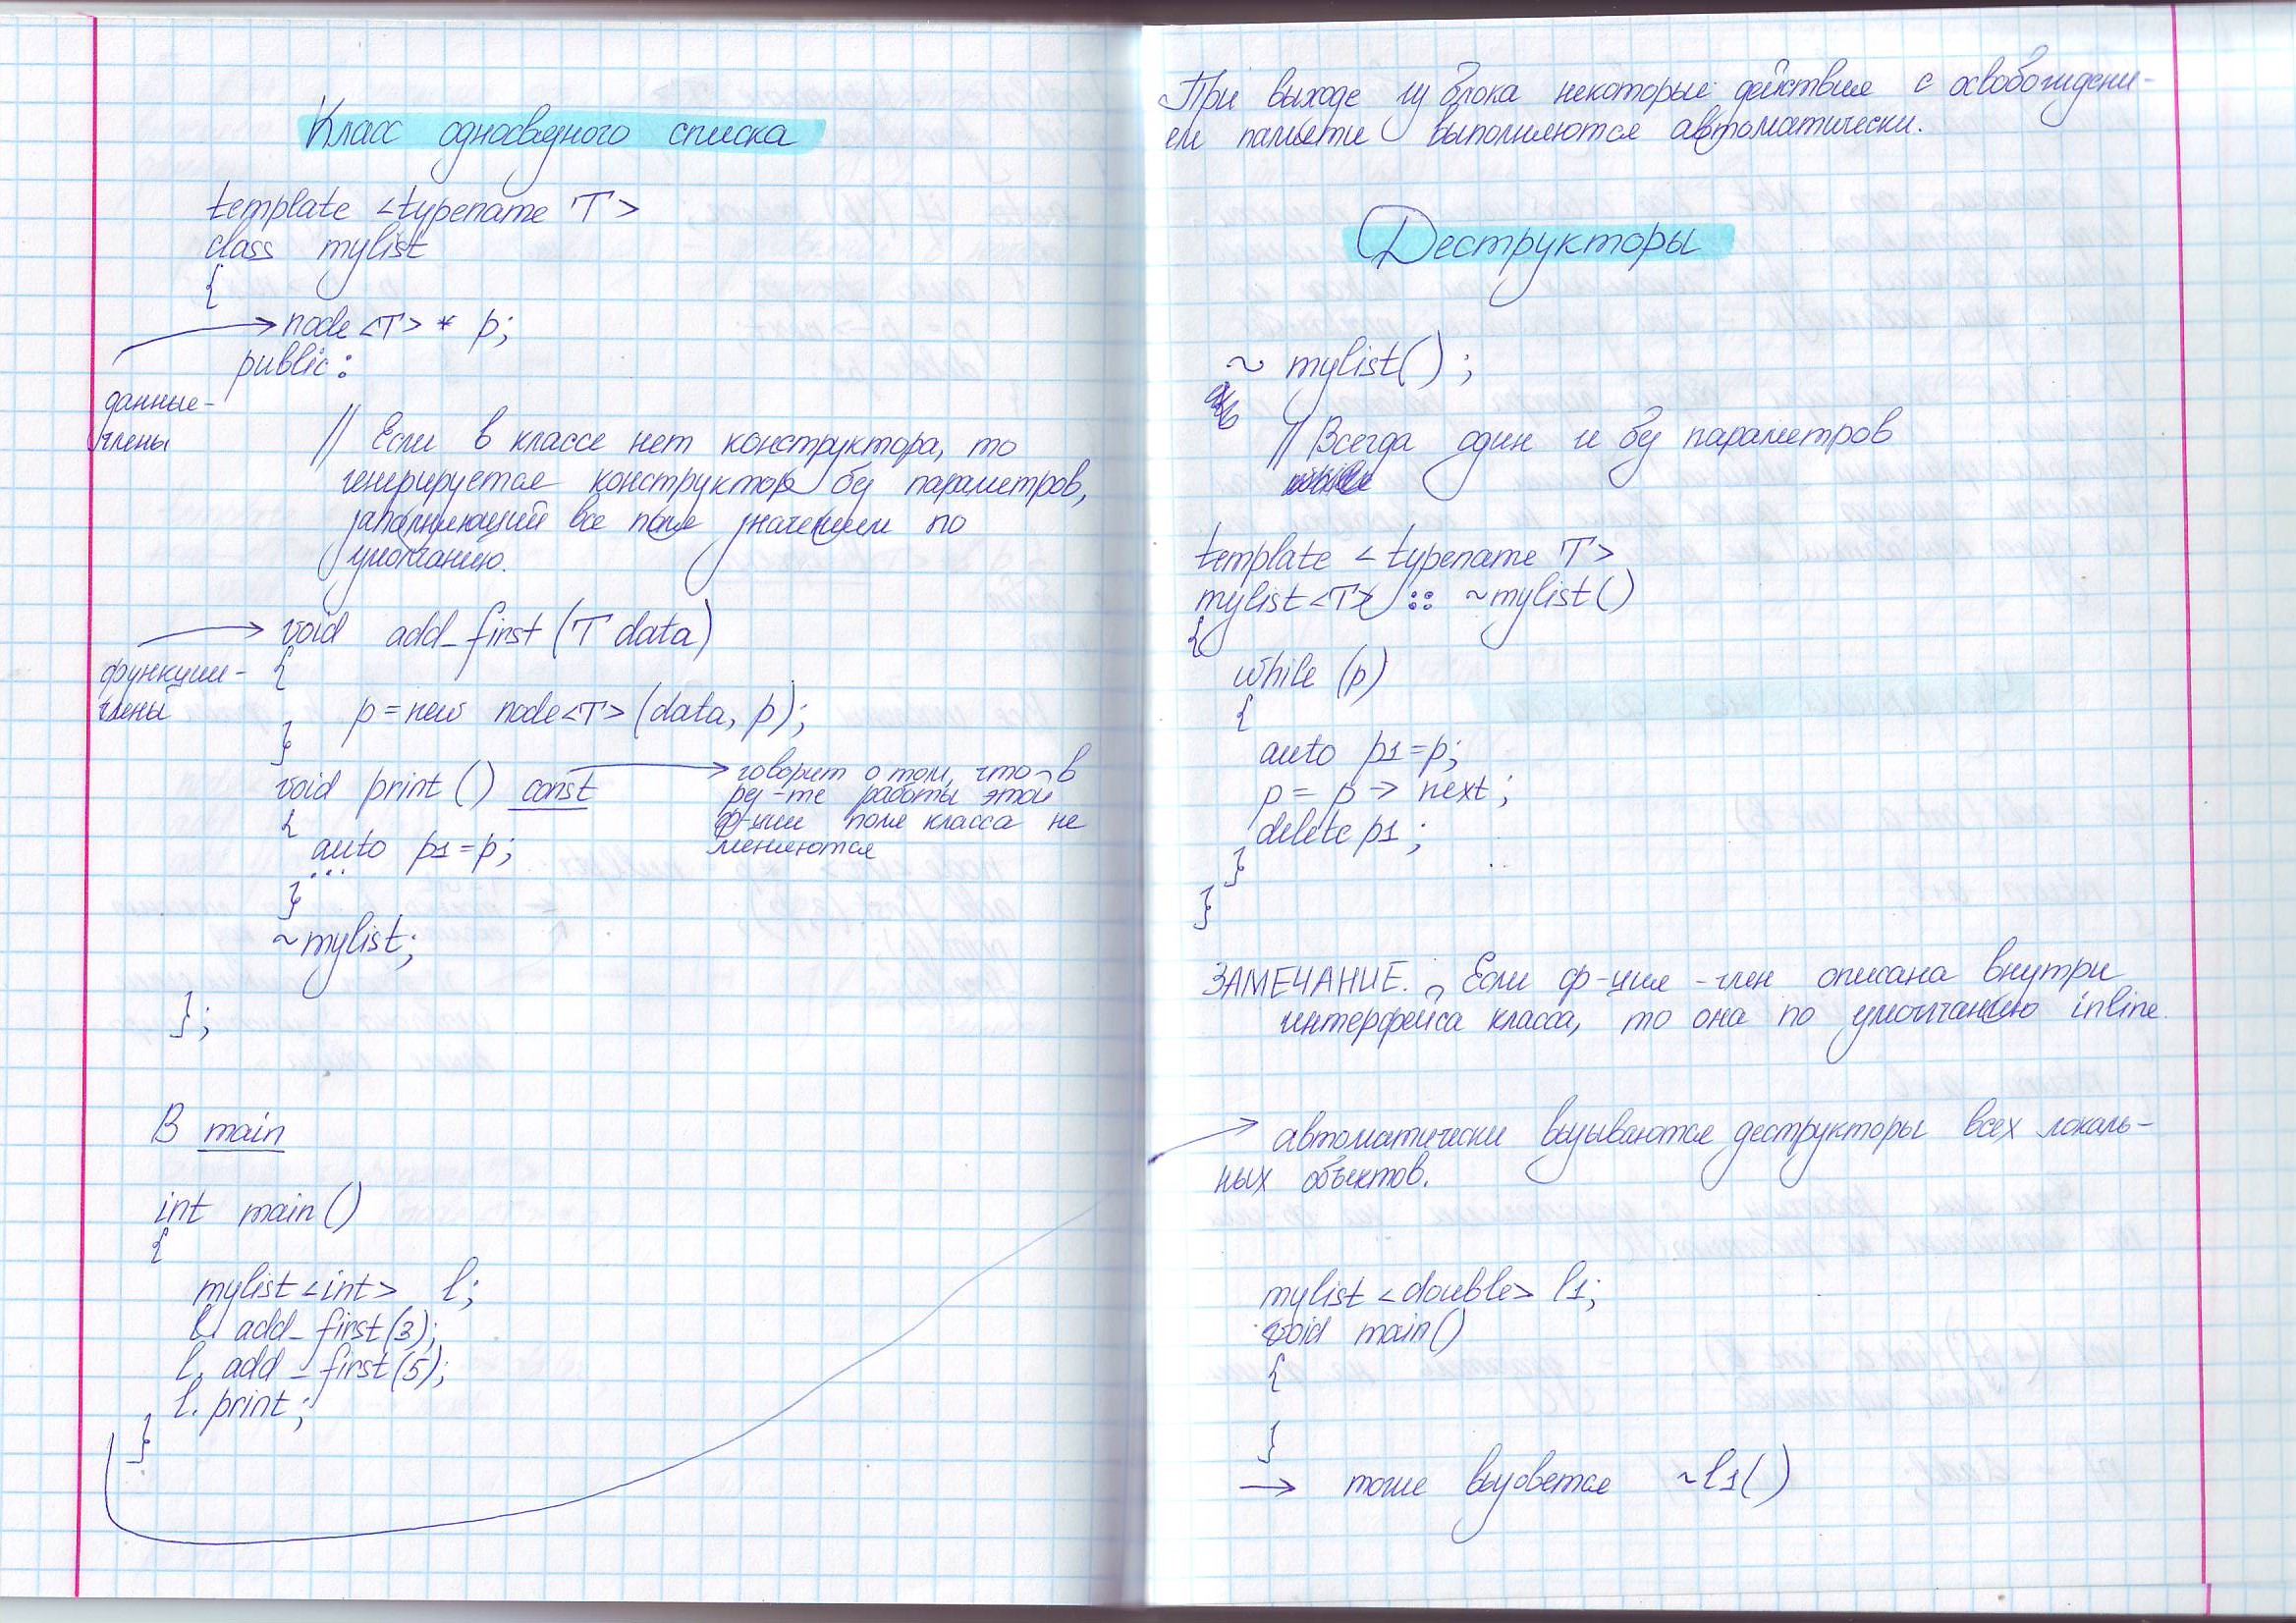 Класс односвязного списка
template <typename T>
class mylist
{
node<T> * p;
public:
данные-
члены
// Если в классе нет конструктора, то
генерируется конструктор без параметров,
заполняющий все поля значением по
умолчанию.
void add_first(T data)
{
функции-
члены
p=new node<T>(data, p);
}
void print() const
говорит о том, что в
рез-те работы этой
ф-ции поля класса не
меняются
{
auto p1=p;
...
}
~mylist;
};
В main
int main()
{
mylist<int> l;
l. add_first(3);
l. add_first(5);
l. print;
}
При выходе из блока некоторые действия с освобождени-
ем памяти выполняются автоматически.
Деструкторы
~ mylist();
// Всегда один и без параметров
template <typename T>
mylist<T> :: ~mylist()
{
while (p)
{
auto p1=p;
p= p -> next;
delete p1;
}
}
ЗАМЕЧАНИЕ. Если ф-ция-член описана внутри
интерфейса класса, то она по умолчанию inline.
автоматически вызываются деструкторы всех локаль-
ных объектов.
mylist <double> l1;
void main()
{
}
→ тоже вызовется ~l1()